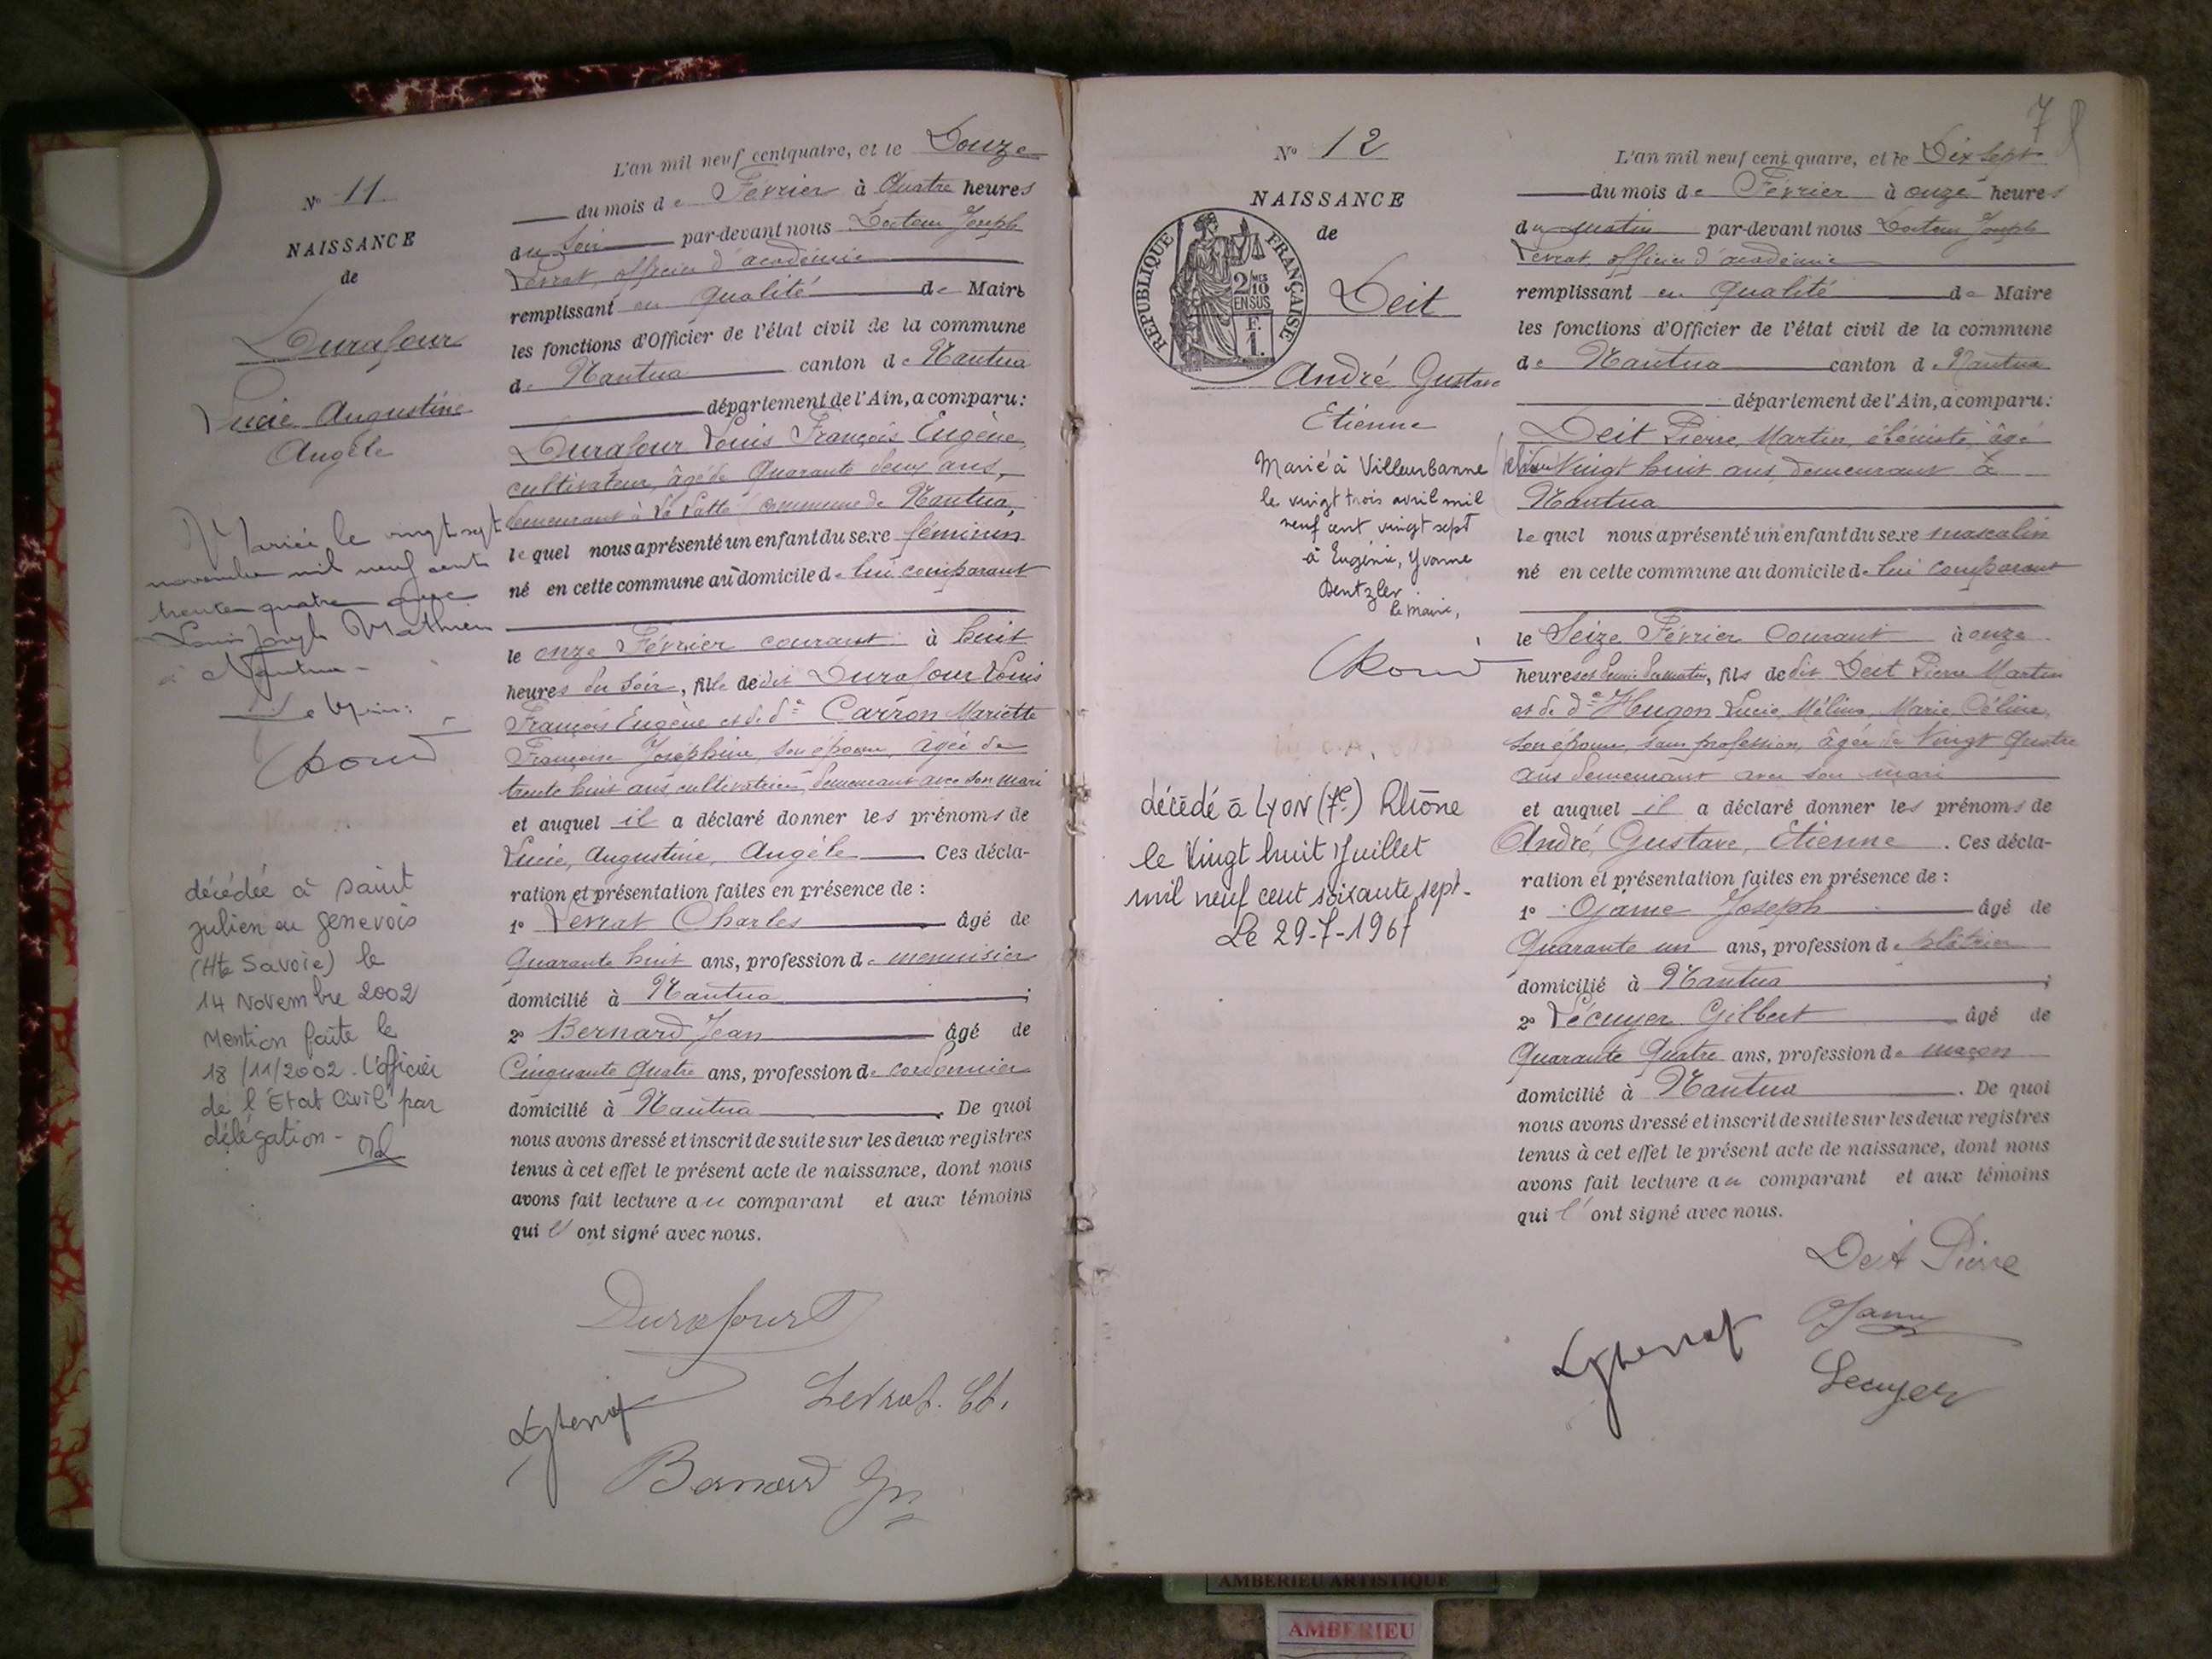 N° 11
NAISSANCE
de
Durafour
Lucie Augustine
Angèle
Mariée le vingt sept
novembre mil neuf cent
trente quatre avec
Louis Joseph Mathieu
à Nantua -
Le Maire:
décédée à Saint
Julien en Genevois
(Hte Savoie) le
14 Novembre 2002
Mention faite le
18/11/2002 - L'officier
de l'Etat Civil par
délégation -
L'an mil neuf cent quatre, et le Douze
du mois de Février à Quatre heures
du Soir par-devant nous Docteur Joseph
Levrat, officier d'académie
remplissant en qualité de Maire
les fonctions d'Officier de l'état civil de la commune
de Nantua canton de Nantua
département de l'Ain, a comparu:
Durafour Louis François Eugène,
cultivateur, âgé de Quarante deux ans,
demeurant à La Latte commune de Nantua,
lequel nous a présenté un enfant du sexe féminin
né en cette commune au domicile de lui comparant
le onze Février courant à huit
heures du Soir, fille de dit Durafour Louis
François Eugène et de de Carron Mariette
Françoise Joséphine, son épouse, âgée de
trente huit ans, cultivatrice, demeurant avec son mari
et auquel il a déclaré donner les prénoms de
Lucie, Augustine, Angèle Ces décla-
ration et présentation faites en présence de :
1° Levrat Charles âgé de
Quarante huit ans, profession de menuisier
domicilié à Nantua ;
2° Bernard Jean âgé de
Cinquante Quatre ans, profession de cordonnier
domicilié à Nantua . De quoi
nous avons dressé et inscrit de suite sur les deux registres
tenus à cet effet le présent acte de naissance, dont nous
avons fait lecture au comparant et aux témoins
qui l' ont signé avec nous.
Durafour
Levrat. Ch.
Bernard Jn
7
N° 12
NAISSANCE
de
REPUBLIQUE FRANÇAISE
2 MES
10
EN SUS
F.
1.
Deit
André Gustave
Etienne
Marié à Villeurbanne
le vingt trois avril mil
neuf cent vingt sept
à Eugénie, Yvonne
Dentzler.
Le Maire,
décédé à LYON (7e) Rhône
le Vingt huit Juillet
mil neuf cent soixante sept.
Le 29-7-1967
L'an mil neuf cent quatre, et le Dix Sept
du mois de Février à onze heures
du matin par-devant nous Docteur Joseph
Levrat, officier d'académie
remplissant en qualité de Maire
les fonctions d'Officier de l'état civil de la commune
de Nantua canton de Nantua
département de l'Ain, a comparu:
Deit Pierre, Martin, ébéniste, âgé
Vingt huit ans, demeurant à
Nantua
lequel nous a présenté un enfant du sexe masculin
né en cette commune au domicile de lui comparant
le Seize Février Courant à onze
heures et demie du matin, fils de dit Deit Pierre Martin
et de de Hugon Lucie, Mélina, Marie, Céline,
son épouse, sans profession, âgée de Vingt Quatre
ans demeurant avec son mari
et auquel il a déclaré donner les prénoms de
André, Gustave, Etienne . Ces décla-
ration et présentation faites en présence de :
1° Ojame Joseph âgé de
Quarante un ans, profession de plâtrier
domicilié à Nantua ;
2° Lécuyer Gilbert âgé de
Quarante Quatre ans, profession de maçon
domicilié à Nantua . De quoi
nous avons dressé et inscrit de suite sur les deux registres
tenus à cet effet le présent acte de naissance, dont nous
avons fait lecture au comparant et aux témoins
qui l' ont signé avec nous.
Deit Pierre
Ojame
Lecuyer
AMBERIEU ARTISTIQUE
AMBERIEU